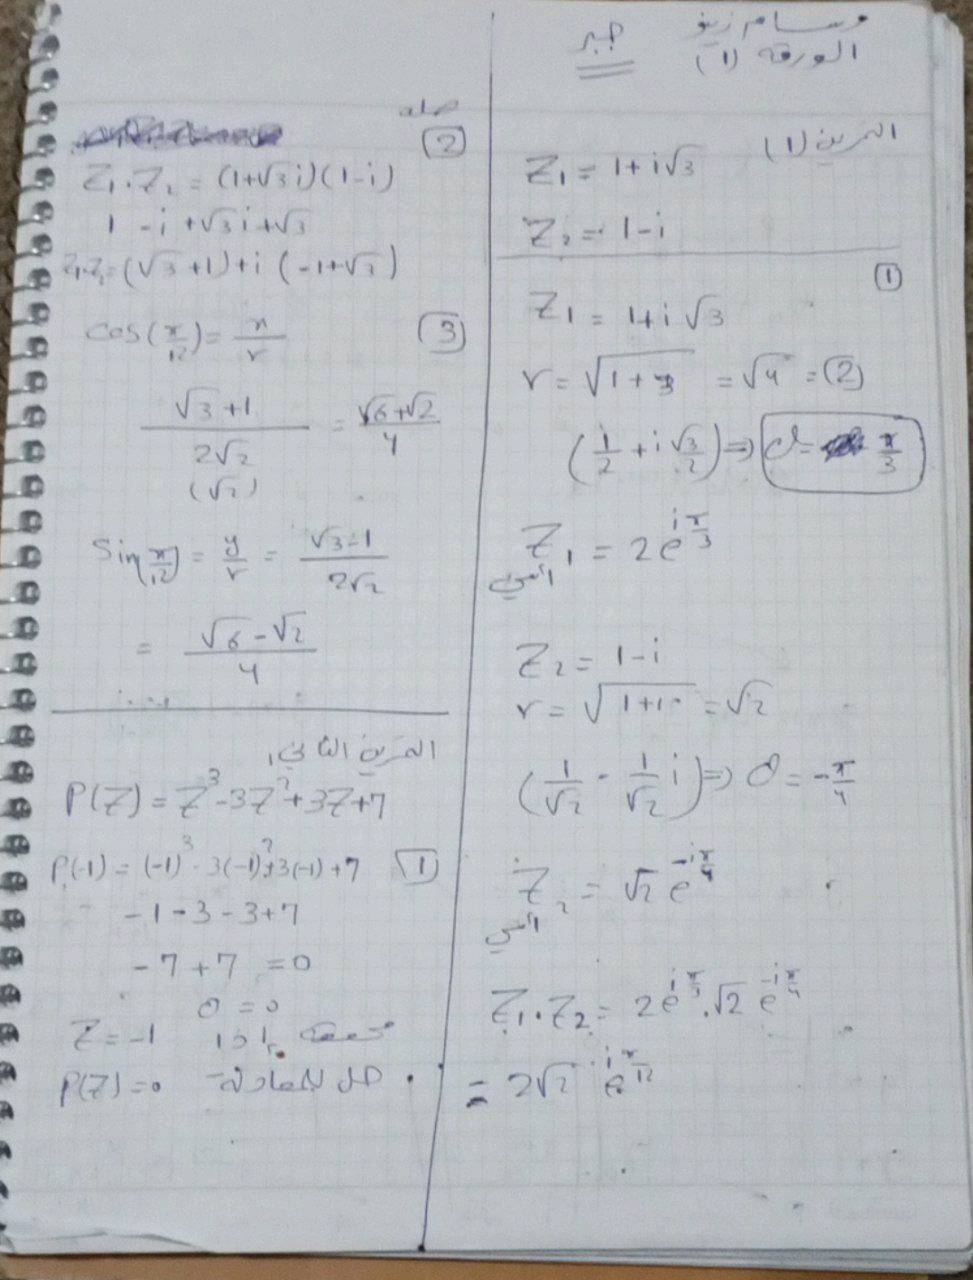 وسام زينو
جبر
الورقة (1)
التمرين (1)
Z₁ = 1+i√3
Z₂ = 1-i
1
Z₁ = 1+i√3
r = √(1+3) = √4 = 2
(1/2 + i√3/2) ⇒ θ = π/3
Z₁ = 2e^(iπ/3)
Z₂ = 1-i
r = √(1+1) = √2
(1/√2 - 1/√2 i) ⇒ θ = -π/4
Z₂ = √2 e^(-iπ/4)
Z₁.Z₂ = 2e^(iπ/3).√2 e^(-iπ/4)
= 2√2 e^(iπ/12)
2
Z₁.Z₂ = (1+√3i)(1-i)
1 -i +√3i+√3
Z₁.Z₂=(√3+1)+i(-1+√3)
3
cos(π/12) = x/r
(√3+1)/(2√2) = (√6+√2)/4
(√2)
Sin(π/12) = y/r = (√3-1)/(2√2)
= (√6-√2)/4
P(Z) = Z³-3Z²+3Z+7
1
P(-1) = (-1)³-3(-1)²+3(-1)+7
-1-3-3+7
-7+7 =0
0 = 0
Z=-1 إذا
P(Z)=0 حل للمعادلة